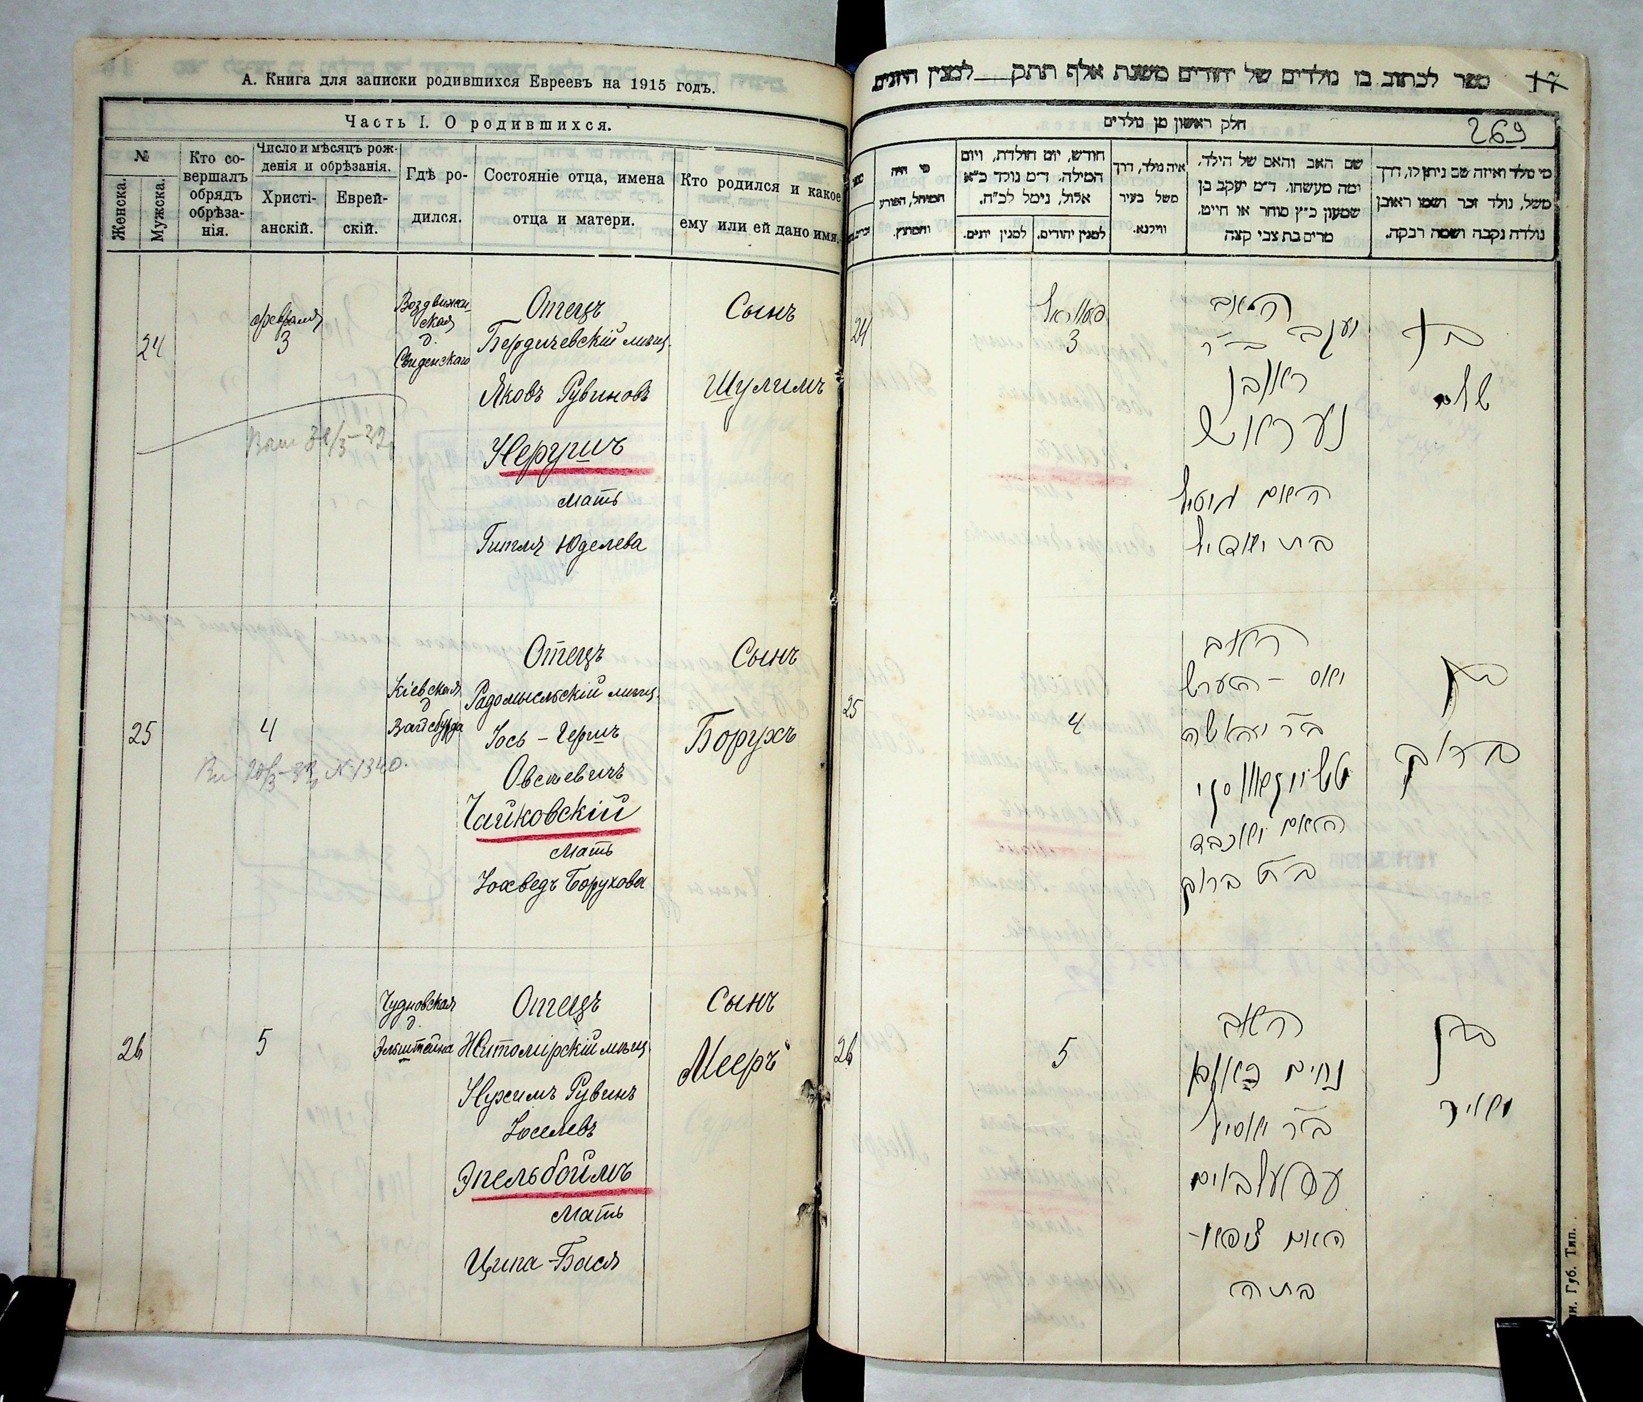 А. Книга для записки родившихся Евреевъ на 1915 годъ.
Часть I. О родившихся.
№
Женска.
Мужска.
Кто со-
вершалъ
обрядъ
обрѣза-
нія.
Число и мѣсяцъ рож-
денія и обрѣзанія.
Христі-
анскій.
Еврей-
скій.
Гдѣ ро-
дился.
Состояніе отца, имена
отца и матери.
Кто родился и какое
ему или ей дано имя.
24
февраля
3
Воздвижен
ская
д.
Свиденскаго
Отецъ
Бердичевскій мѣщ.
Яковъ Рувиновъ
Нерушъ
Мать
Гитля Юделева
Сынъ
Шулимъ
25
4
Кіевская
д.
Вайсбурда
Отецъ
Радомысльскій мѣщ.
Іось-Гершъ
Овсѣевичъ
Чайковскій
Мать
Іохведъ Борухова
Сынъ
Борухъ
№ 1340.
26
5
Чудновская
д.
Эльштейна
Отецъ
Житомірскій мѣщ.
Нухимъ Рувинъ
Іоселевъ
Эпельбоймъ
Мать
Ципа-Бася
Сынъ
Мееръ
ספר לכתוב בו נולדים של יהודים משנת אלף תתק למנין היונים
17
חלק ראשון מן נולדים
269
מי נולד ואיזה שם ניתן לו, דרך
משל, נולד זכר ושמו ראובן
נולדה נקבה ושמה רבקה.
שם האב והאם של הילד,
ומה מעשהו. ד״מ יעקב בן
שמעון כ״ץ סוחר או חייט,
מרים בת צבי קצה
איה נולד, דרך
משל בעיר
ווילנא.
חודש, יום הולדת, ויום
המילה. ד״מ נולד כ״א
אלול, נימל לכ״ח.
למנין יהודים.
למנין יונים.
מי היה
המוהל, הפורע
והמוצץ.
24
3
האב
יעקב ב״ר
ראובן
נעראוש
האם גיטיל
בת יודיל
בן
25
4
האב
יאס-הערש
ב״ר יהאשע
האם יאכבד
ב״ת ברוך
בן
ברוך
26
5
האב
נחים ראובן
ב״ר יאסיל
עפעלבוים
האם ציפא-
בתיה
בן
מאיר